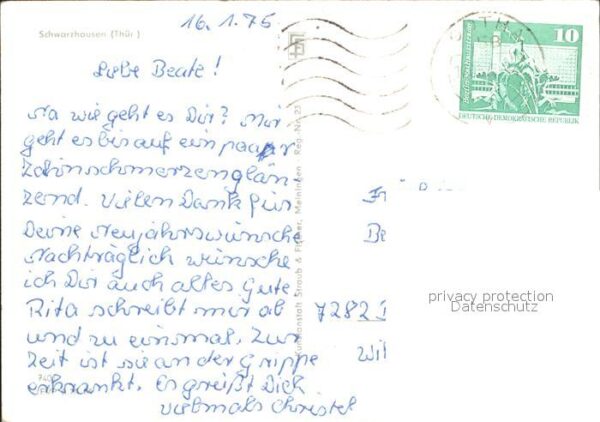 16.1.75
Schwarzhausen (Thür.)
Liebe Beate!
Na wie geht es Dir? Mir
geht es bis auf ein paar
Zahnschmerzen glän-
zend. Vielen Dank für
Deine Neujahrswünsche
Nachträglich wünsche
ich Dir auch alles Gute
Rita schreibt mir ab
und zu einmal. Zur
Zeit ist sie an der Grippe
erkrankt. Es grüßt Dich
vielmals Christel
Reg.-Nr. 23
10
DEUTSCHE DEMOKRATISCHE REPUBLIK
Be
7282
Wil
privacy protection
Datenschutz